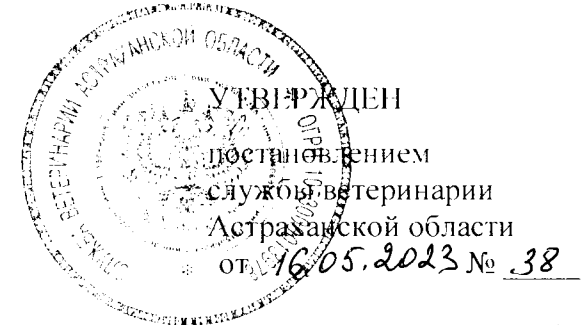 СЛУЖБА ВЕТЕРИНАРИИ АСТРАХАНСКОЙ ОБЛАСТИ
ОГРН
УТВЕРЖДЕН
постановлением
службы ветеринарии
Астраханской области
от 16.05.2023 № 38